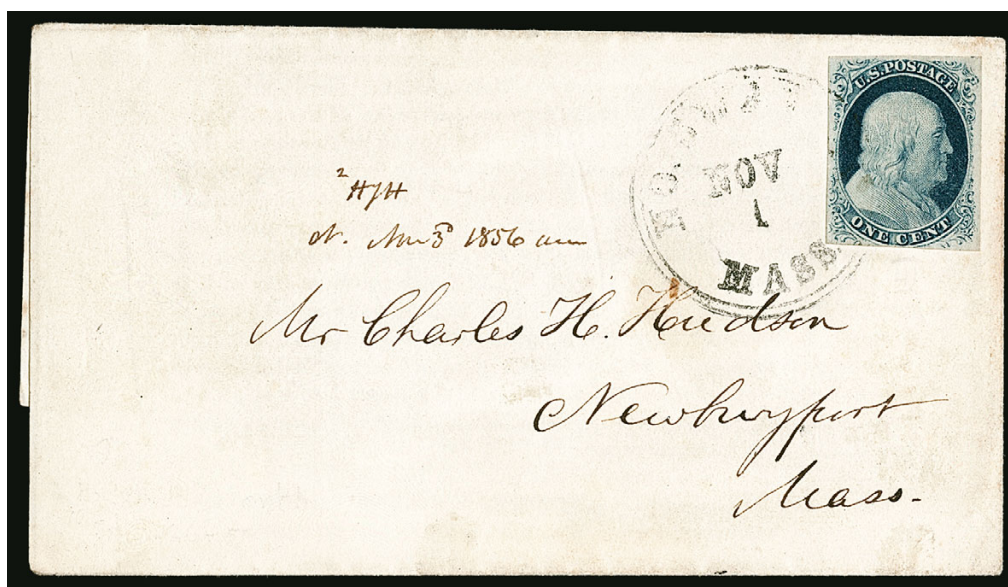 U.S. POSTAGE
ONE CENT
NOV
1
MASS
2
HJH
1856
Mr Charles H. Hudson
Newburyport
Mass.